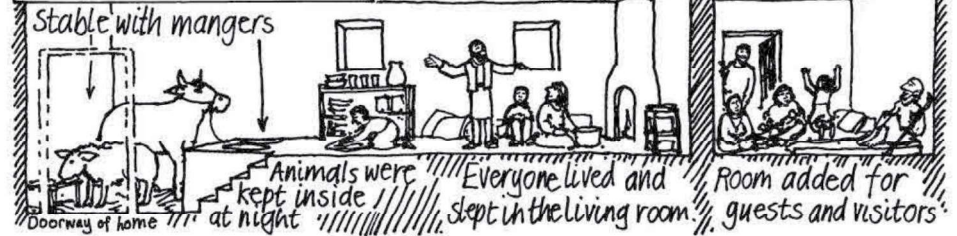 Stable with mangers
Doorway of home
Animals were
kept inside
at night
Everyone lived and
slept in the living room.
Room added for
guests and visitors